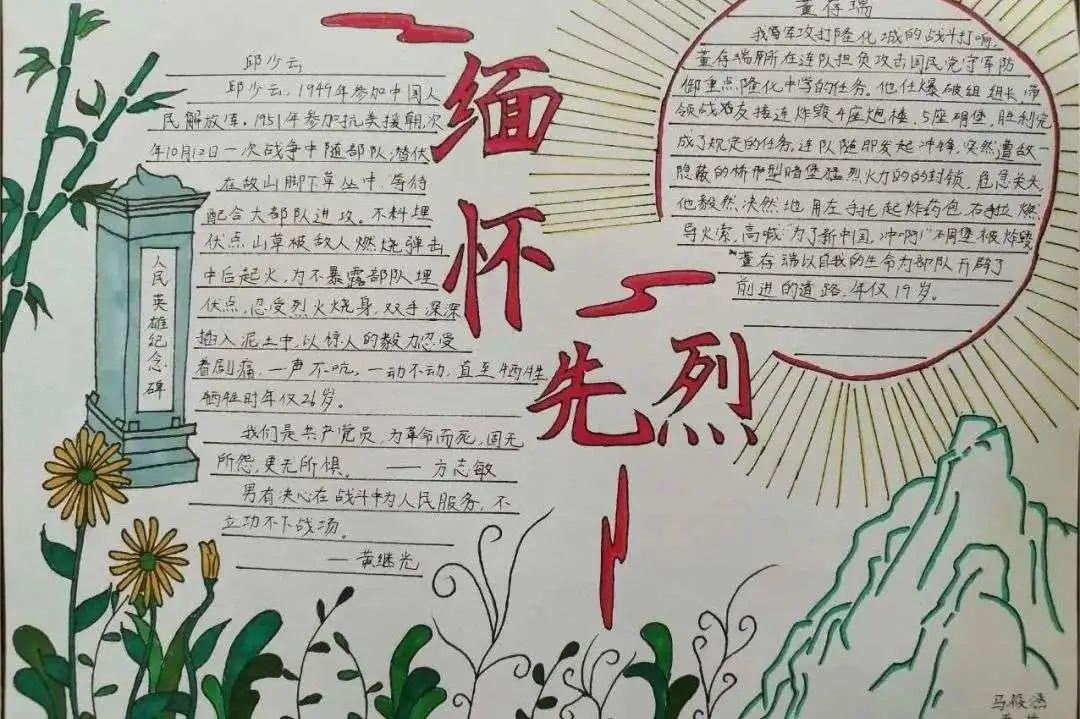 缅怀先烈
邱少云
邱少云,1949年参加中国人
民解放军.1951年参加抗美援朝.次
年10月12日一次战争中随部队潜伏
在故山脚下草丛中,等待
配合大部队进攻。不料埋
伏点山草被敌人燃烧弹击
中后起火,为不暴露部队埋
伏点,忍受烈火烧身,双手深深
插入泥土中,以惊人的毅力忍受
着剧痛,一声不吭,一动不动,直至牺牲
牺牲时年仅26岁。
我们是共产党员,为革命而死,固无
所怨,更无所惧。——方志敏
男有决心在战斗中为人民服务,不
立功不下战场。
—黄继光
人民英雄纪念碑
董存瑞
我军攻打隆化城的战斗打响,
董存瑞所在连队担负攻击国民党守军防
御重点隆化中学的任务。他任爆破组组长,带
领战友接连炸毁4座炮楼,5座碉堡,胜利完
成了规定的任务。连队随即发起冲锋,突然遭敌一
隐蔽的桥型暗堡猛烈火力的的封锁。危急关头,
他毅然决然地用左手托起炸药包,右手拉燃
导火索,高喊"为了新中国,冲啊!"碉堡被炸毁
董存瑞以自我的生命为部队开辟了
前进的道路,年仅19岁。
马筱涵